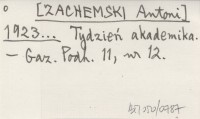 ° [ZACHEMSKI Antoni]
1923... Tydzień akademika.
— Gaz. Podh. 11, nr 12.